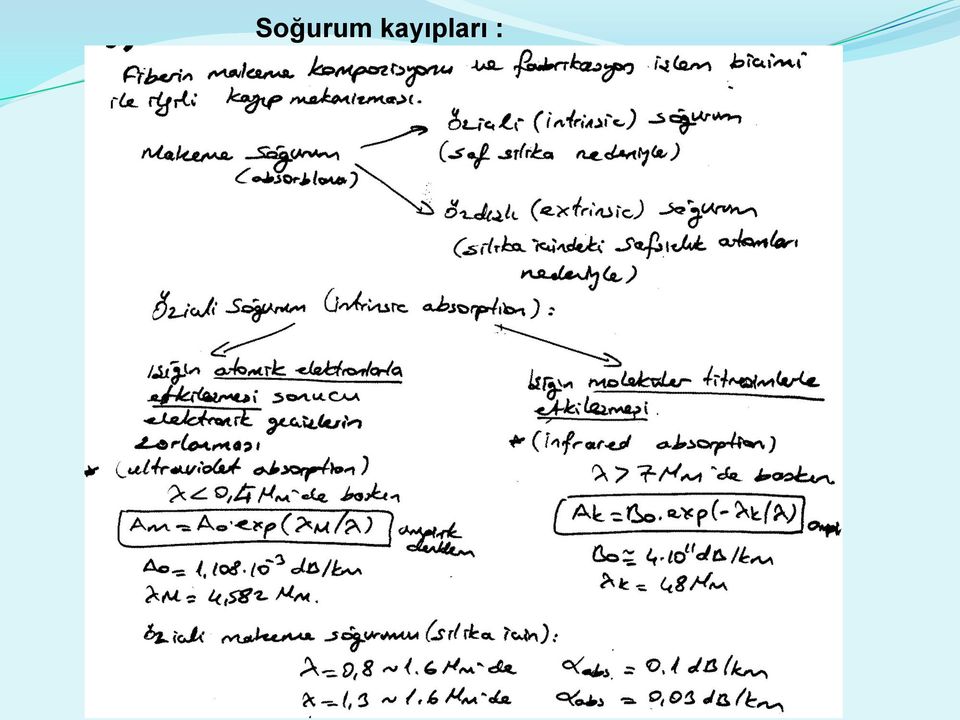 Soğurum kayıpları :
Fiberin malzeme kompozisyonu ve fabrikasyon işlem biçimi
ile ilgili kayıp mekanizması.
Öziçli (intrinsic) soğurum
(saf silika nedeniyle)
Malzeme soğurum
(absorblama)
Özdışlı (extrinsic) soğurum
(silika içindeki safsızlık atomları
nedeniyle)
Öziçli soğurum (intrinsic absorption) :
Işığın atomik elektronlarla
etkileşmesi sonucu
elektronik geçişlerin
zorlanması
* (ultraviolet absorption)
λ < 0,4 Mm'de baskın
Am = Ao.exp(λM/λ) ampirik
denklem
Ao = 1,108.10⁻³ dB/km
λM = 4,582 Mm.
Işığın moleküler titreşimlerle
etkileşmesi.
* (infrared absorption)
λ > 7 Mm'de baskın
Ak = Bo.exp(-λk/λ)
Bo ≅ 4.10¹¹ dB/km
λk = 48 Mm
Öziçli malzeme soğurumu (silika için) :
λ = 0,8 ~ 1.6 Mm'de αabs. = 0.1 dB/km
λ = 1,3 ~ 1.6 Mm'de αabs = 0,03 dB/km